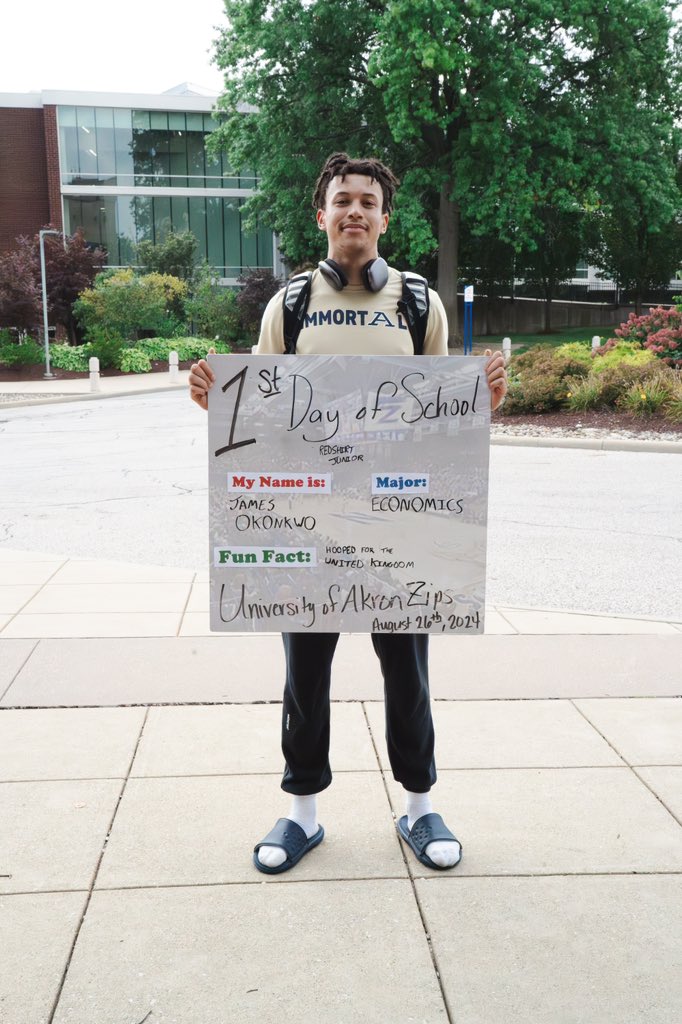 IMMORTAL
1st Day of School
REDSHIRT
JUNIOR
My Name is:
JAMES
OKONKWO
Major:
ECONOMICS
Fun Fact:
HOOPED FOR THE
UNITED KINGDOM
University of Akron Zips
August 26th, 2024